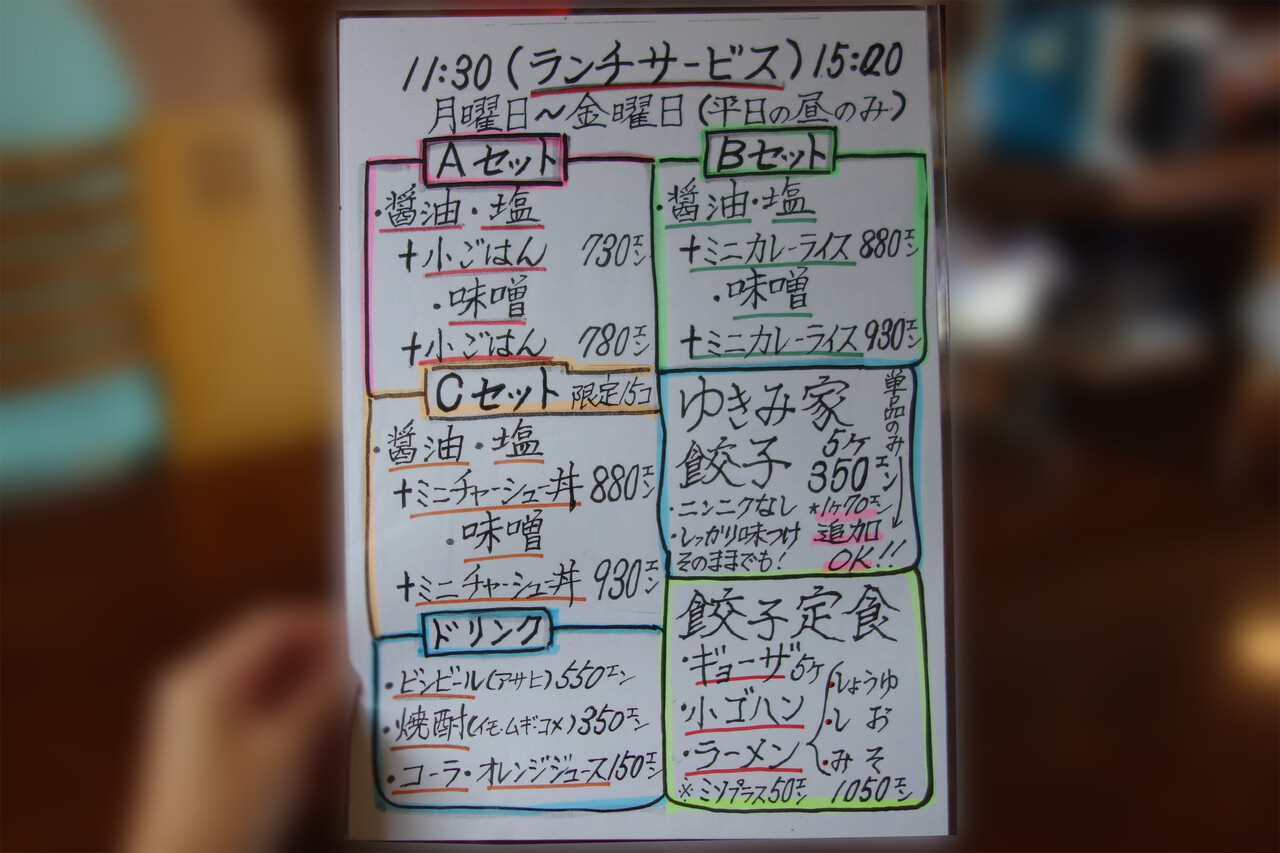 11:30(ランチサービス)15:00
月曜日〜金曜日(平日の昼のみ)
Aセット
・醤油・塩
+小ごはん 730エン
・味噌
+小ごはん 780エン
Bセット
・醤油・塩
+ミニカレーライス 880エン
・味噌
+ミニカレーライス 930エン
Cセット 限定15コ
・醤油・塩
+ミニチャーシュー丼 880エン
・味噌
+ミニチャーシュー丼 930エン
ゆきみ家
餃子 5ケ 350エン
単品のみ
・ニンニクなし
*1ケ70エン
・しっかり味つけ
追加
そのままでも!
OK!!
ドリンク
・ビンビール(アサヒ)550エン
・焼酎(イモ・ムギ・コメ)350エン
・コーラ・オレンジジュース150エン
餃子定食
・ギョーザ5ケ
・小ゴハン
・ラーメン
・しょうゆ
・しお
・みそ
※ミソプラス50エン 1050エン